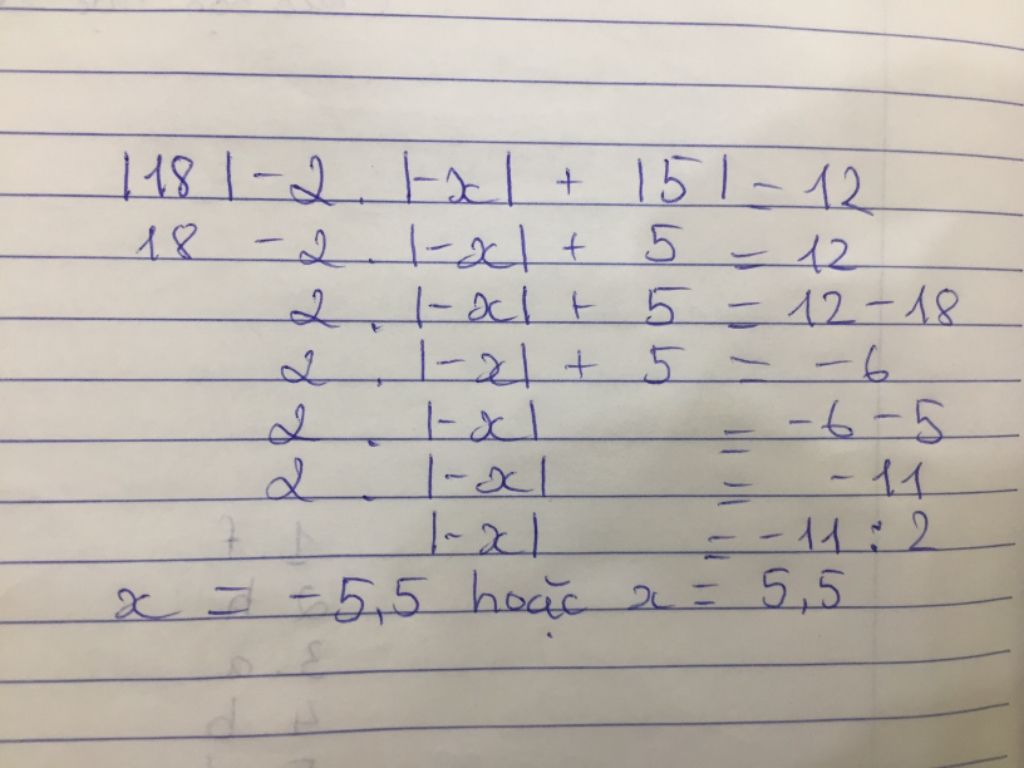 |18| - 2 . |-x| + |5| = 12
18 - 2 . |-x| + 5 = 12
2 . |-x| + 5 = 12 - 18
2 . |-x| + 5 = -6
2 . |-x| = -6 - 5
2 . |-x| = -11
|-x| = -11 : 2
x = -5,5 hoặc x = 5,5